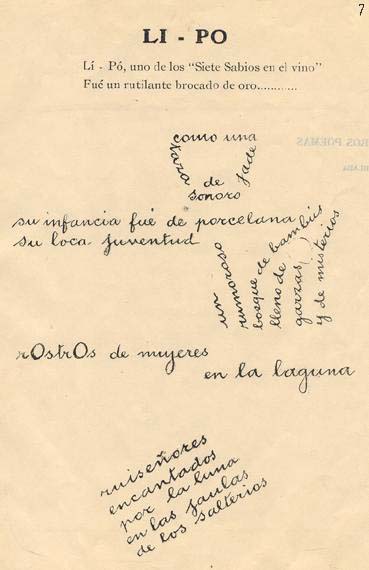 7
LI - PO
Lí - Pó, uno de los “Siete Sabios en el vino”
Fué un rutilante brocado de oro............
como una
taza
de
jade
sonoro
su infancia fué de porcelana
su loca juventud
un
rumoroso
bosque de bambús
lleno de
garzas
y de misterios
rOstrOs de mujeres
en la laguna
ruiseñores
encantados
por la luna
en las jaulas
de los salterios